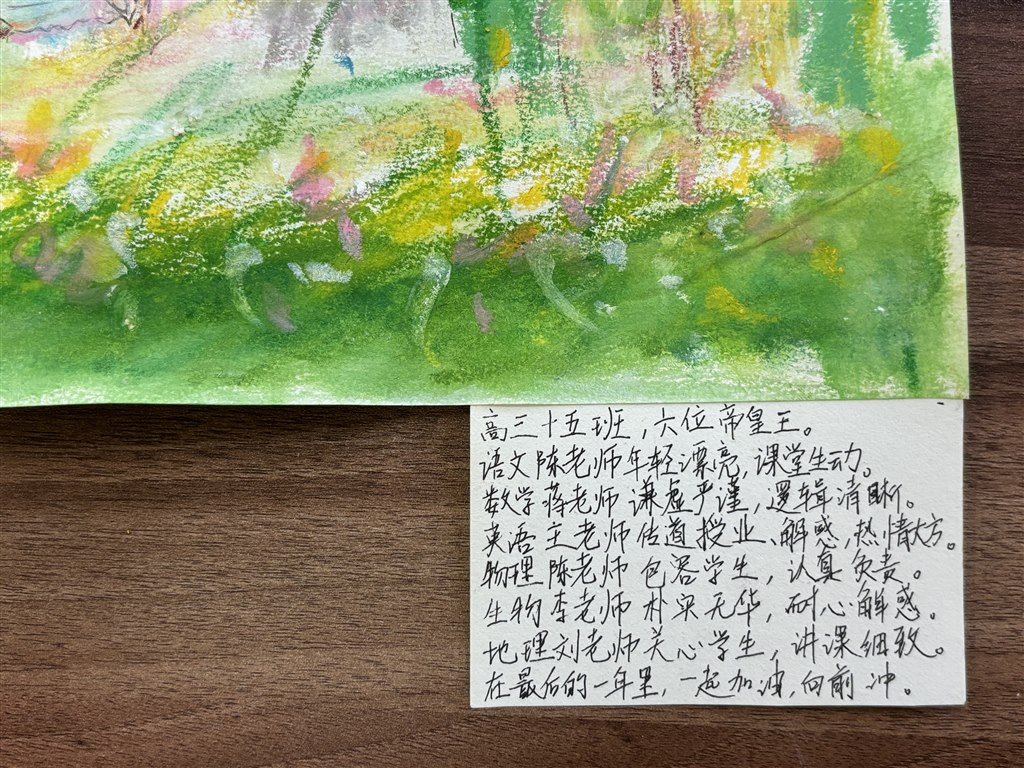 高三十五班，六位帝皇王。
语文陈老师年轻漂亮，课堂生动。
数学蒋老师谦虚严谨，逻辑清晰。
英语王老师传道授业、解惑，热情大方。
物理陈老师包容学生，认真负责。
生物李老师朴实无华，耐心解惑。
地理刘老师关心学生，讲课细致。
在最后的一年里，一起加油，向前冲。